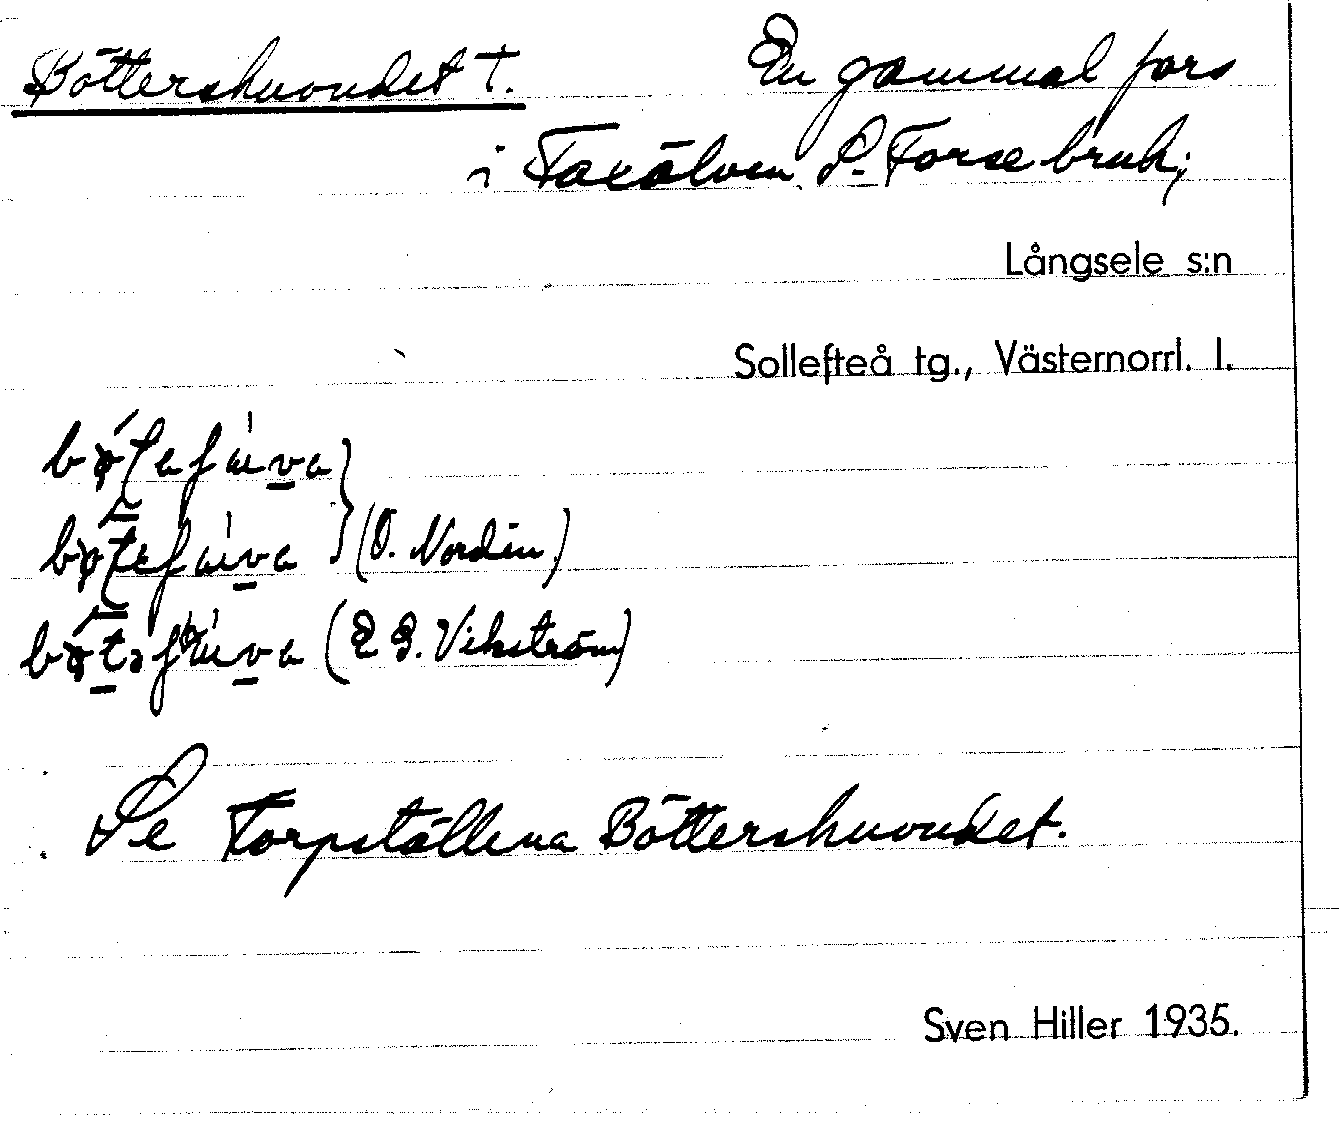 Böttershuvudet †. En gammal fors
i Faxälven, S. Forse bruk;
Långsele s:n
Sollefteå tg., Västernorrl. l.
(O. Nordin)
(E G. Vikström)
Se Torpställena Böttershuvudet.
Sven Hiller 1935.